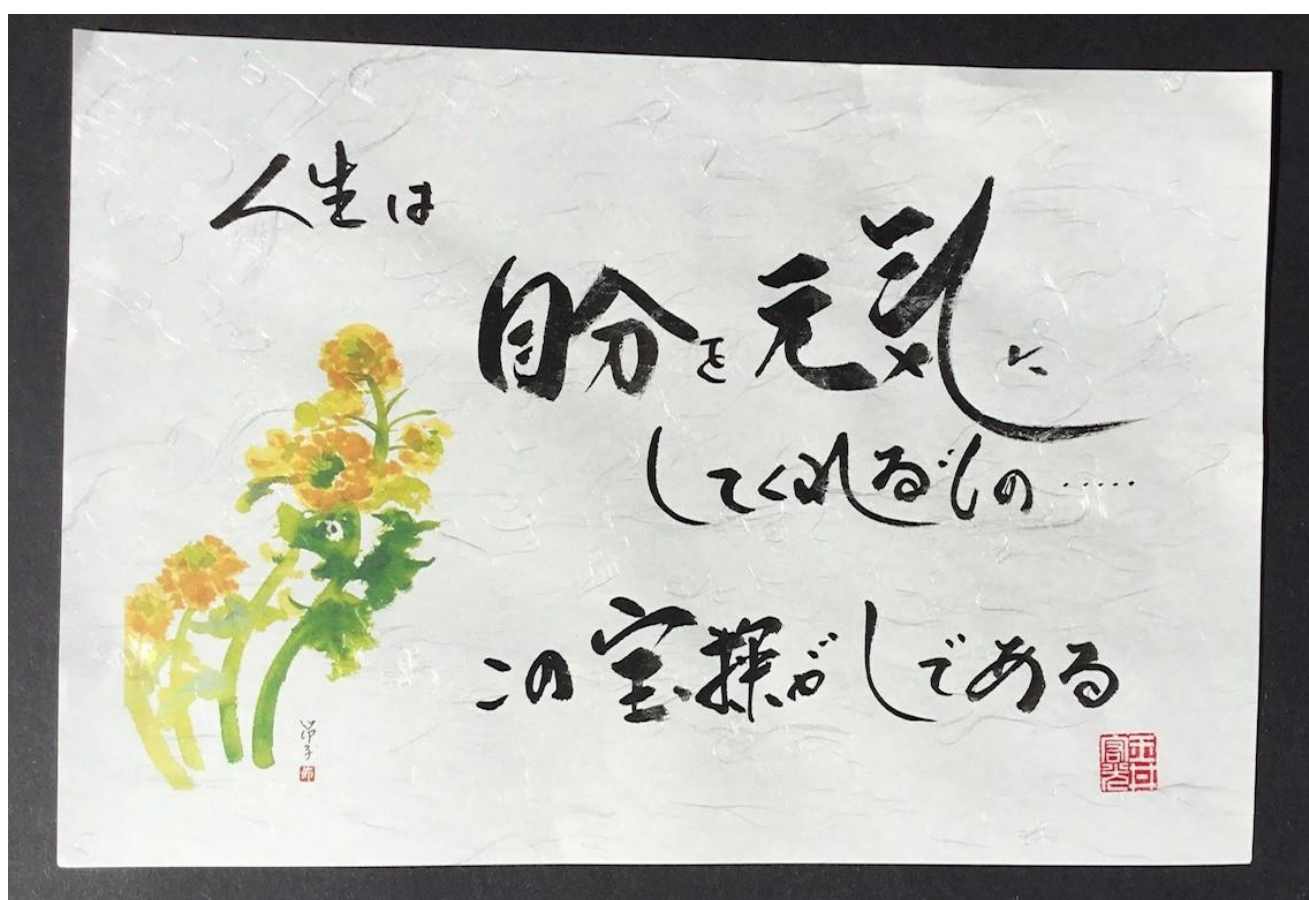 人生は
自分を元気に
してくれるもの‥‥‥
この宝探がしである